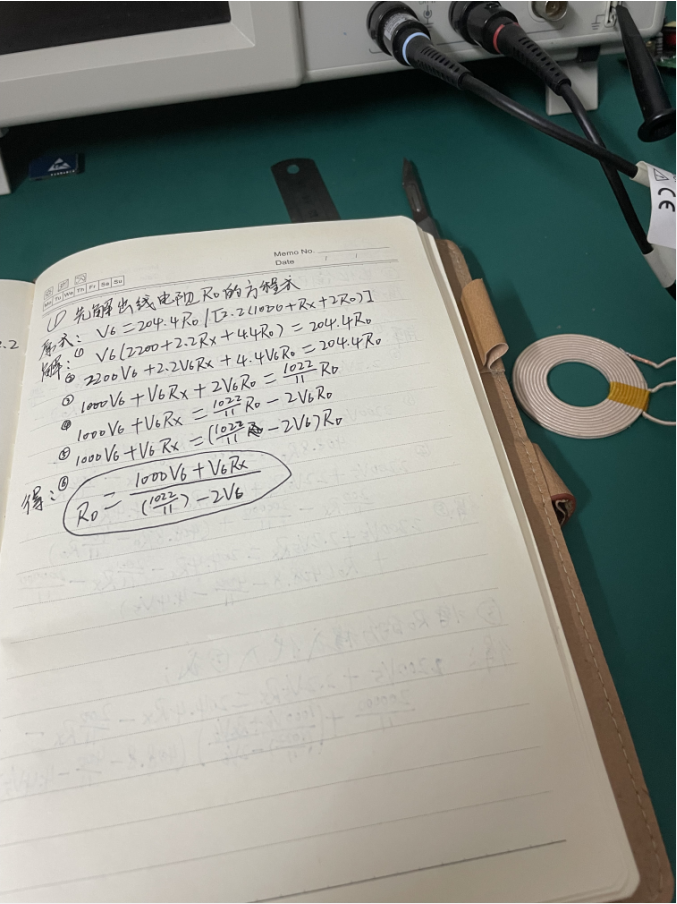 Memo No.
Date / /
Mo Tu We Th Fr Sa Su
① 先解出线电阻R₀的方程式
原式: V₆=204.4R₀/[2.2(1000+Rx+2R₀)]
解: ① V₆(2200+2.2Rx+4.4R₀)=204.4R₀
② 2200V₆+2.2V₆Rx+4.4V₆R₀=204.4R₀
③ 1000V₆+V₆Rx+2V₆R₀=1022/11 R₀
④ 1000V₆+V₆Rx=1022/11 R₀-2V₆R₀
⑤ 1000V₆+V₆Rx=(1022/11 -2V₆)R₀
得: ⑥ R₀=(1000V₆+V₆Rx)/((1022/11)-2V₆)
.2
CE